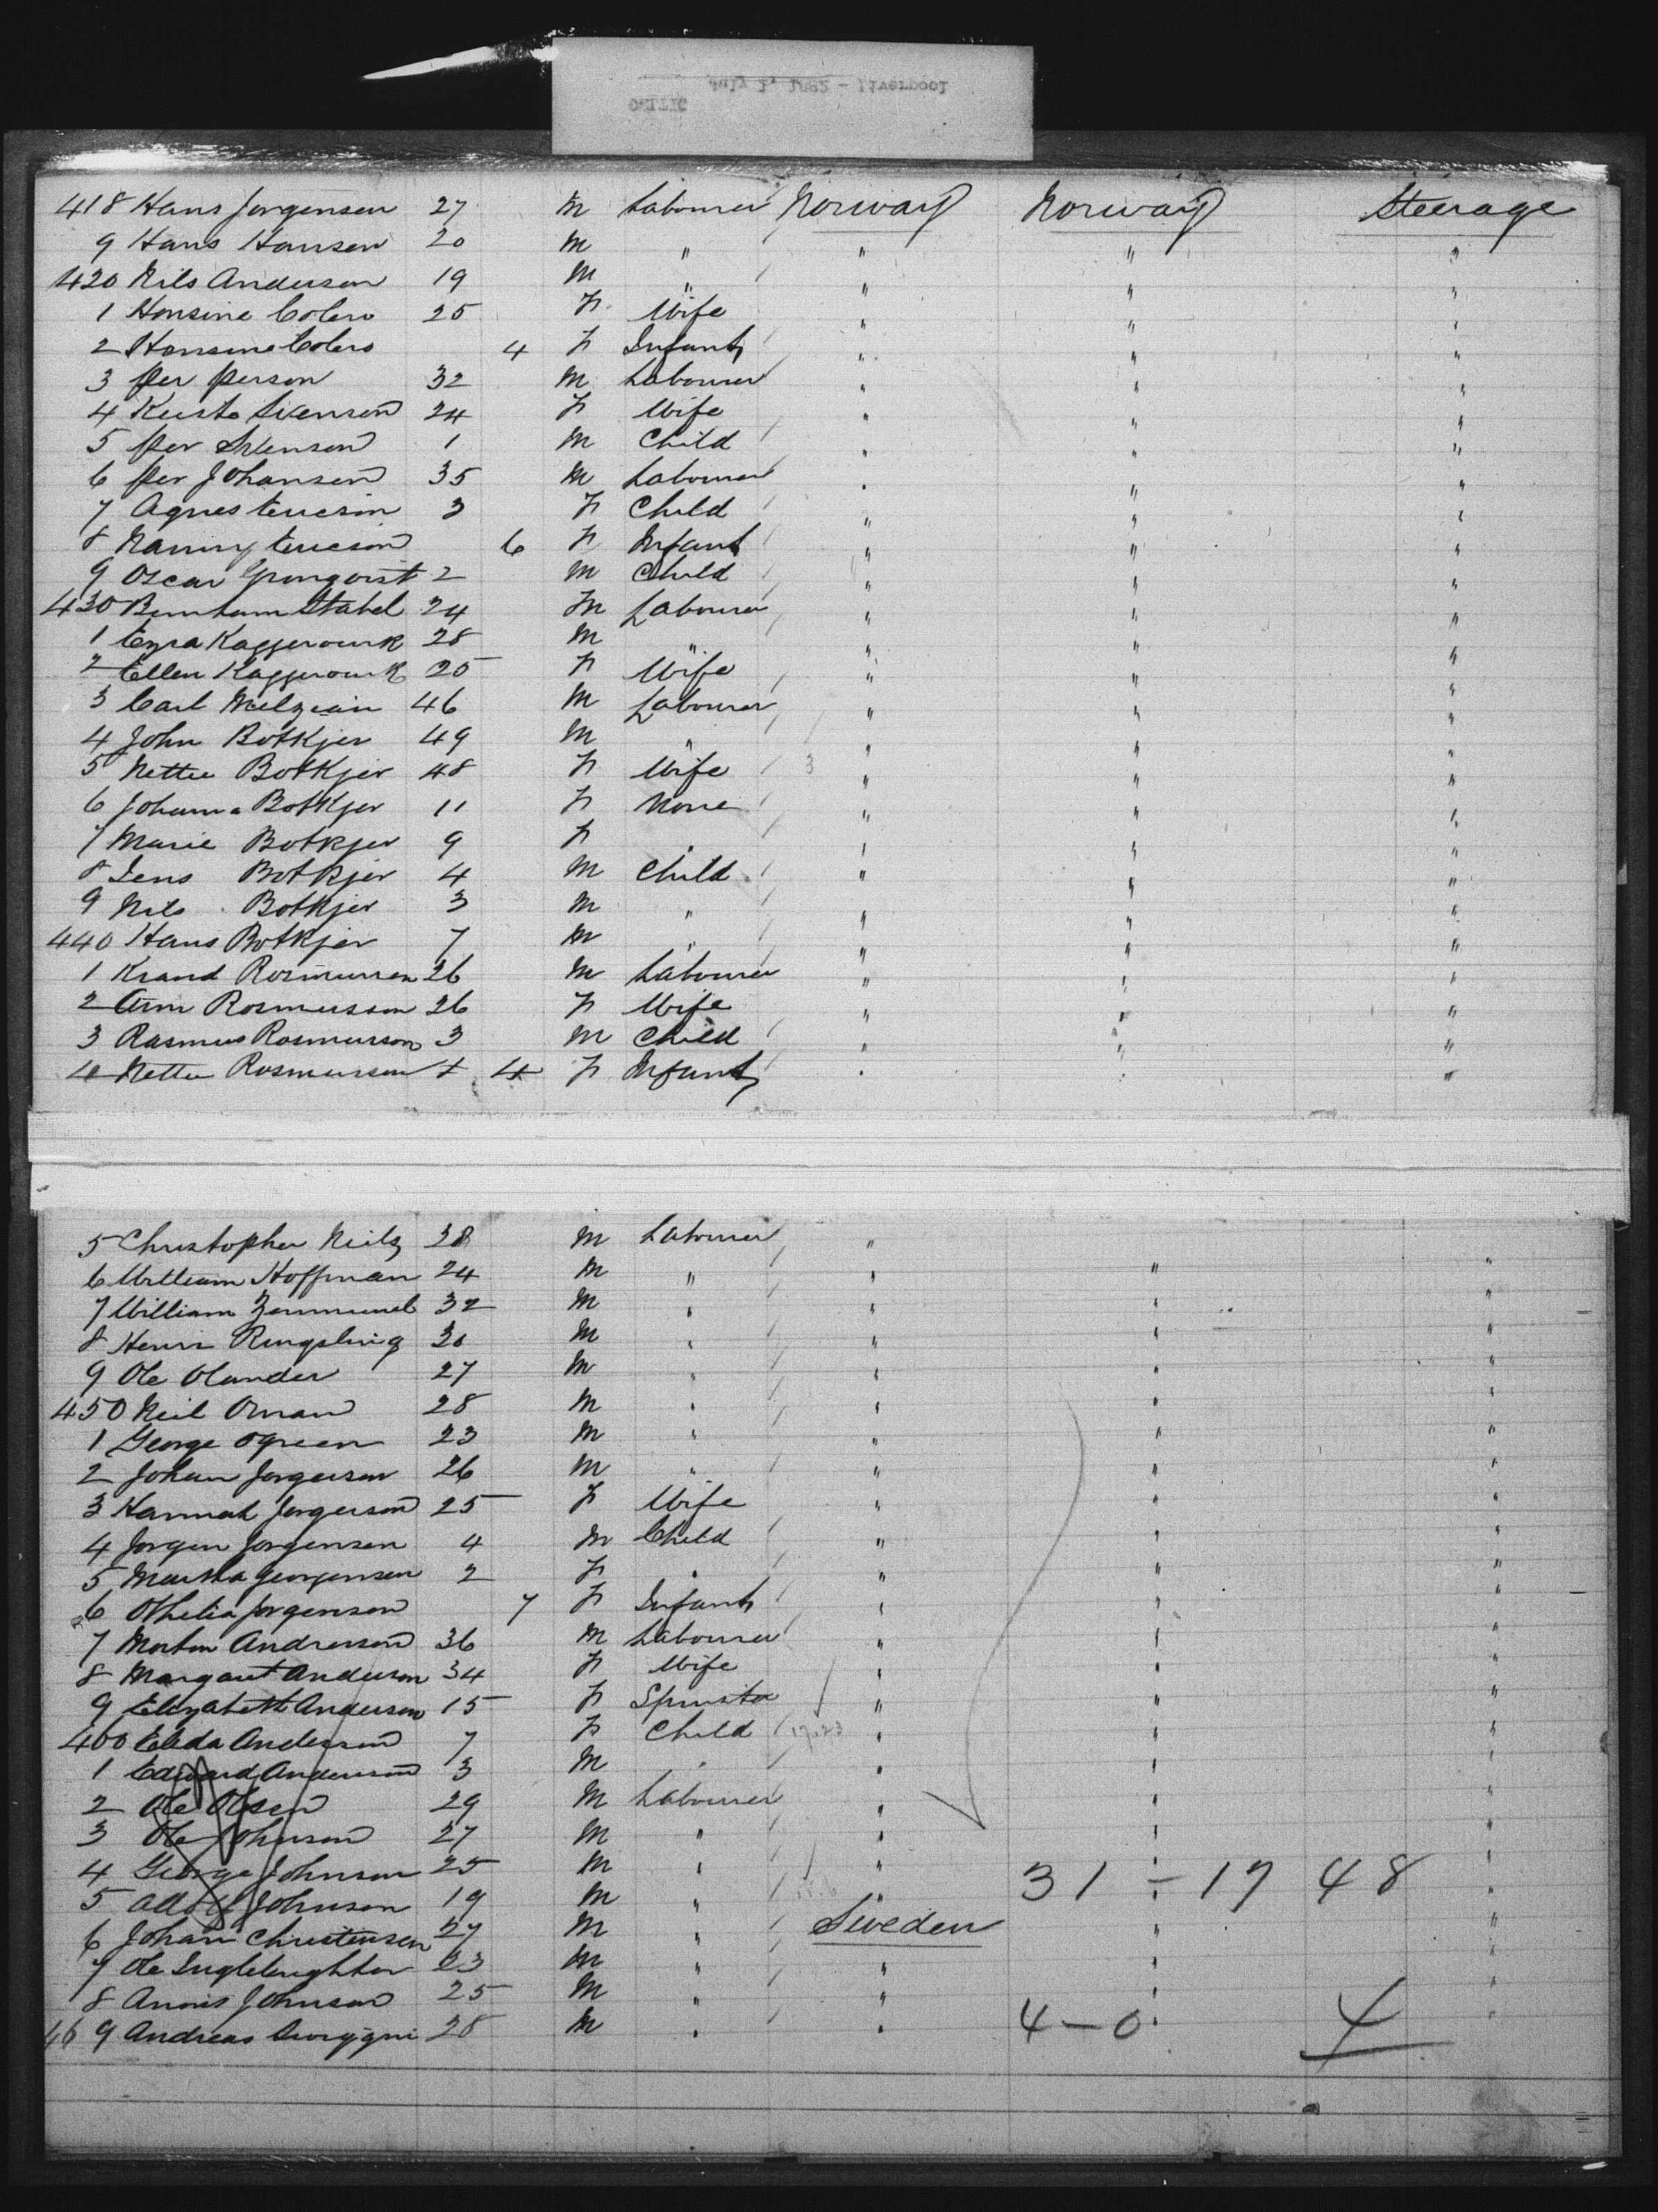 CELTIC
July 1, 1882 - Liverpool
418 Hans Jorgensen 27 M Labourer Norway Norway Steerage
9 Hans Hansen 20 M " " " "
420 Nils Anderson 19 M " " " "
1 Hansine 25 F Wife " " "
2 Hansine 4 F Infant " " "
3 Per Person 32 M Labourer " " "
4 Svenson 24 F Wife " " "
5 Per Svenson 1 M Child " " "
6 Per Johansen 35 M Labourer " " "
7 Agnes Ericson 3 F Child " " "
8 Nanny Ericson 6 F Infant " " "
9 Oscar 2 M Child " " "
430 Stabel 24 M Labourer " " "
1 Ezra 28 M " " " "
2 Ellen 25 F Wife " " "
3 Carl 46 M Labourer " " "
4 John Botkjer 49 M " " " "
5 Nettie Botkjer 48 F Wife 3 " " "
6 Johanna Botkjer 11 F None " " "
7 Marie Botkjer 9 F " " " "
8 Jens Botkjer 4 M Child " " "
9 Nils Botkjer 3 M " " " "
440 Hans Botkjer 7 M " " " "
1 Rosmussen 26 M Labourer " " "
2 Ann Rosmusson 26 F Wife " " "
3 Rasmus Rosmusson 3 M Child " " "
4 Nettie Rosmussen + 4 F Infant " " "
5 Christopher 38 M Labourer " "
6 William Hoffman 24 M " " " "
7 William 32 M " " " "
8 Henri 30 M " " " "
9 Ole Olander 27 M " " " "
450 Neil Oman 28 M " " " "
1 George Ogreen 23 M " " " "
2 Johan Jorgerson 26 M " " " "
3 Hannah Jorgerson 25 F Wife " " "
4 Jorgen Jorgensen 4 M Child " " "
5 Martha Georgensen 2 F " " " "
6 Othelia Jorgenson 7 F Infant " " "
7 Morton Anderson 36 M Labourer " " "
8 Margaret Anderson 34 F Wife " " "
9 Elizabeth Anderson 15 F Spinster " " "
460 Elida Anderson 7 F Child " " "
1 Edward Anderson 3 M " " " "
2 Ole Olsen 29 M Labourer " " "
3 Ole Johnson 27 M " " " "
4 George Johnson 25 M " " 31 - 17 48 "
5 Adolf Johnson 19 M " " " "
6 Johan Christensen 27 M " Sweden " "
7 Ole 23 M " " " "
8 Johnson 25 M " " " "
46 9 Andreas 28 M " " 4 - 0 4